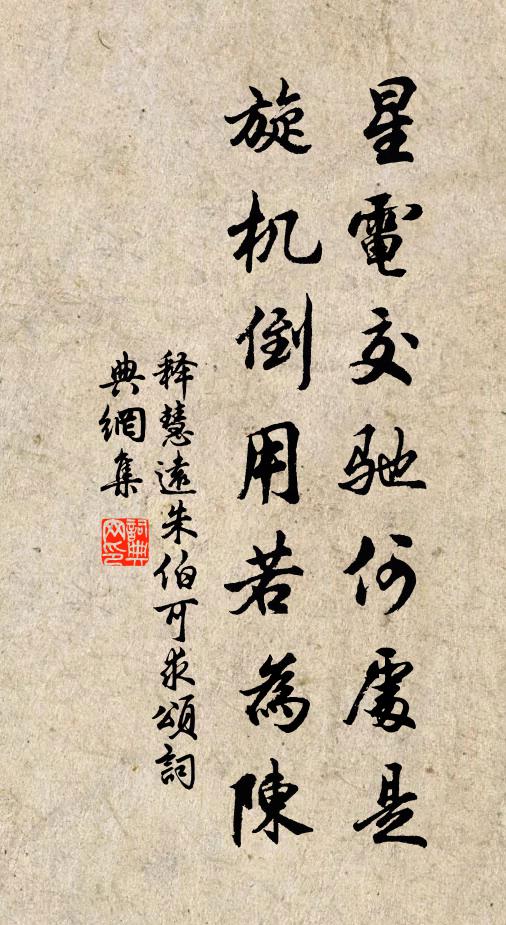 星電交馳何處是
旋机倒用若為陳
释慧遠朱伯可求頌詞
典網集
詞典網印